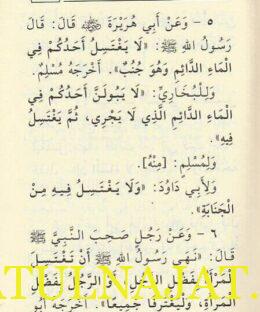 ٥ - وَعَنْ أَبِي هُرَيْرَةَ ﷺ قَالَ: قَالَ
رَسُولُ اللهِ ﷺ: «لَا يَغْتَسِلُ أَحَدُكُمْ فِي
الْمَاءِ الدَّائِمِ وَهُوَ جُنُبٌ». أَخْرَجَهُ مُسْلِمٌ.
وَلِلْبُخَارِيِّ: «لَا يَبُولَنَّ أَحَدُكُمْ فِي
الْمَاءِ الدَّائِمِ الَّذِي لَا يَجْرِي، ثُمَّ يَغْتَسِلُ
فِيهِ».
وَلِمُسْلِمٍ: [مِنْهُ].
وَلِأَبِي دَاوُدَ: «وَلَا يَغْتَسِلُ فِيهِ مِنَ
الْجَنَابَةِ».
٦ - وَعَنْ رَجُلٍ صَحِبَ النَّبِيَّ ﷺ
قَالَ: «نَهَى رَسُولُ اللهِ ﷺ أَنْ تَغْتَسِلَ
الْمَرْأَةُ بِفَضْلِ الرَّجُلِ، أَوِ الرَّجُلُ بِفَضْلِ
الْمَرْأَةِ، وَلْيَغْتَرِفَا جَمِيعًا». أَخْرَجَهُ أَبُو
ATULNAJAT.